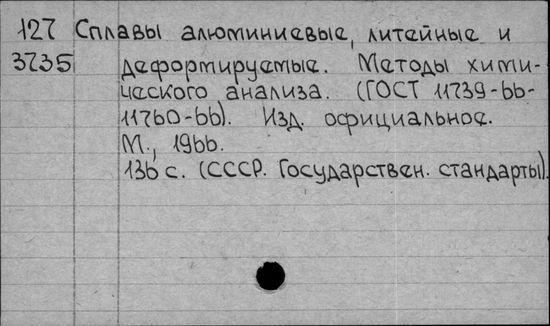 127 Сплавы алюминиевые, литейные и
3735 дефортируетые. Методы хити-
ческого анализа. (ГОСТ 11739-66-
11760-66). Изд. официальное.
М., 1966.
136 с. (СССР. Государствен. стандарты).